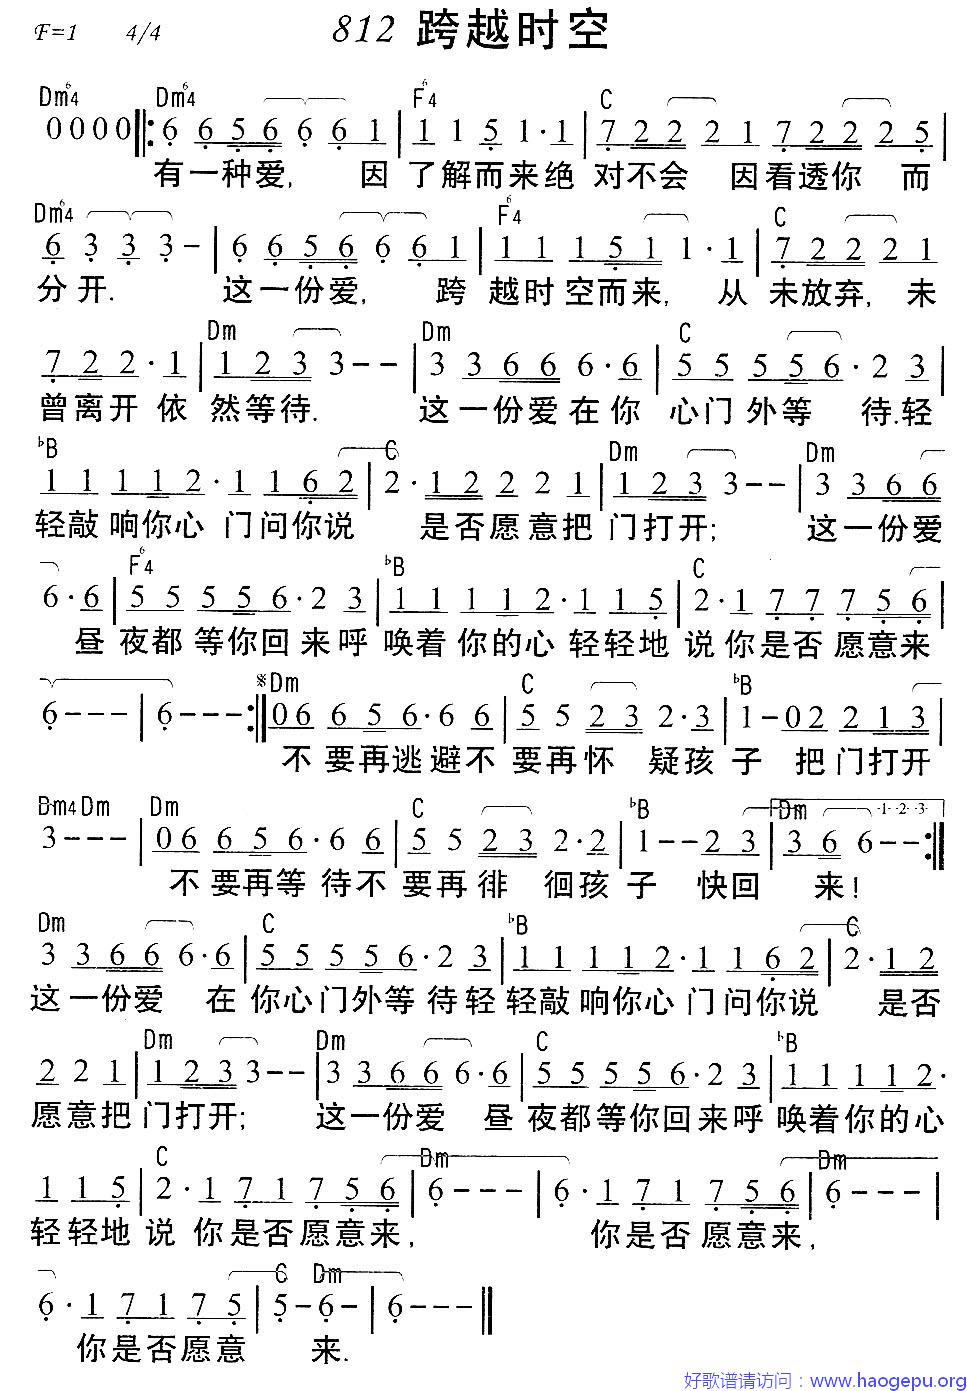 F=1 4/4 812 跨越时空
Dm⁶4 Dm⁶4 F⁶4 C
0000‖: 6 6 5 6 6 6 1 | 1 1 5 1·1 | 7 2 2 2 1 7 2 2 2 5 |
有一种爱, 因 了解而来绝 对不会 因看透你 而
Dm⁶4 F⁶4 C
6 3 3 3 - | 6 6 5 6 6 6 1 | 1 1 1 5 1 1·1 | 7 2 2 2 2 1
分开. 这一份爱, 跨 越时空而来, 从 未放弃, 未
Dm Dm C
7 2 2·1 | 1 2 3 3 - - | 3 3 6 6 6·6 | 5 5 5 5 6·2 3 |
曾离开 依 然等待. 这一份爱在你 心门外等 待.轻
♭B C Dm Dm
1 1 1 1 2·1 1 6 2 | 2·1 2 2 2 1 | 1 2 3 3 - - | 3 3 6 6
轻敲响你心 门问你说 是否愿意把 门打开; 这一份爱
F⁶4 ♭B C
6·6 | 5 5 5 5 6·2 3 | 1 1 1 1 2·1 1 5 | 2·1 7 7 7 5 6 |
昼 夜都等你回来呼 唤着你的心轻轻地 说你是否愿意来
𝄋Dm C ♭B
6 - - - | 6 - - - :‖ 0 6 6 5 6·6 6 | 5 5 2 3 2·3 | 1 - 0 2 2 1 3 |
不要再逃避不要再怀 疑孩子 把门打开
Bm4 Dm Dm C ♭B Dm ·1··2··3·
3 - - - | 0 6 6 5 6·6 6 | 5 5 2 3 2·2 | 1 - - 2 3 | 3 6 6 - - :‖
不要再等待不要再徘 徊孩子 快回 来!
Dm C ♭B C
3 3 6 6 6·6 | 5 5 5 5 6·2 3 | 1 1 1 1 2·1 1 6 2 | 2·1 2
这一份爱 在 你心门外等待轻 轻敲响你心门问你说 是否
Dm Dm C ♭B
2 2 1 | 1 2 3 3 - - | 3 3 6 6 6·6 | 5 5 5 5 6·2 3 | 1 1 1 1 2·
愿意把 门打开; 这一份爱 昼 夜都等你回来呼 唤着你的心
C Dm Dm
1 1 5 | 2·1 7 1 7 5 6 | 6 - - - | 6·1 7 1 7 5 6 | 6 - - - |
轻轻地 说 你是否愿意来, 你是否愿意来,
C Dm
6·1 7 1 7 5 | 5 - 6 - | 6 - - - ‖
你是否愿意 来.
好歌谱请访问：www.haogepu.org